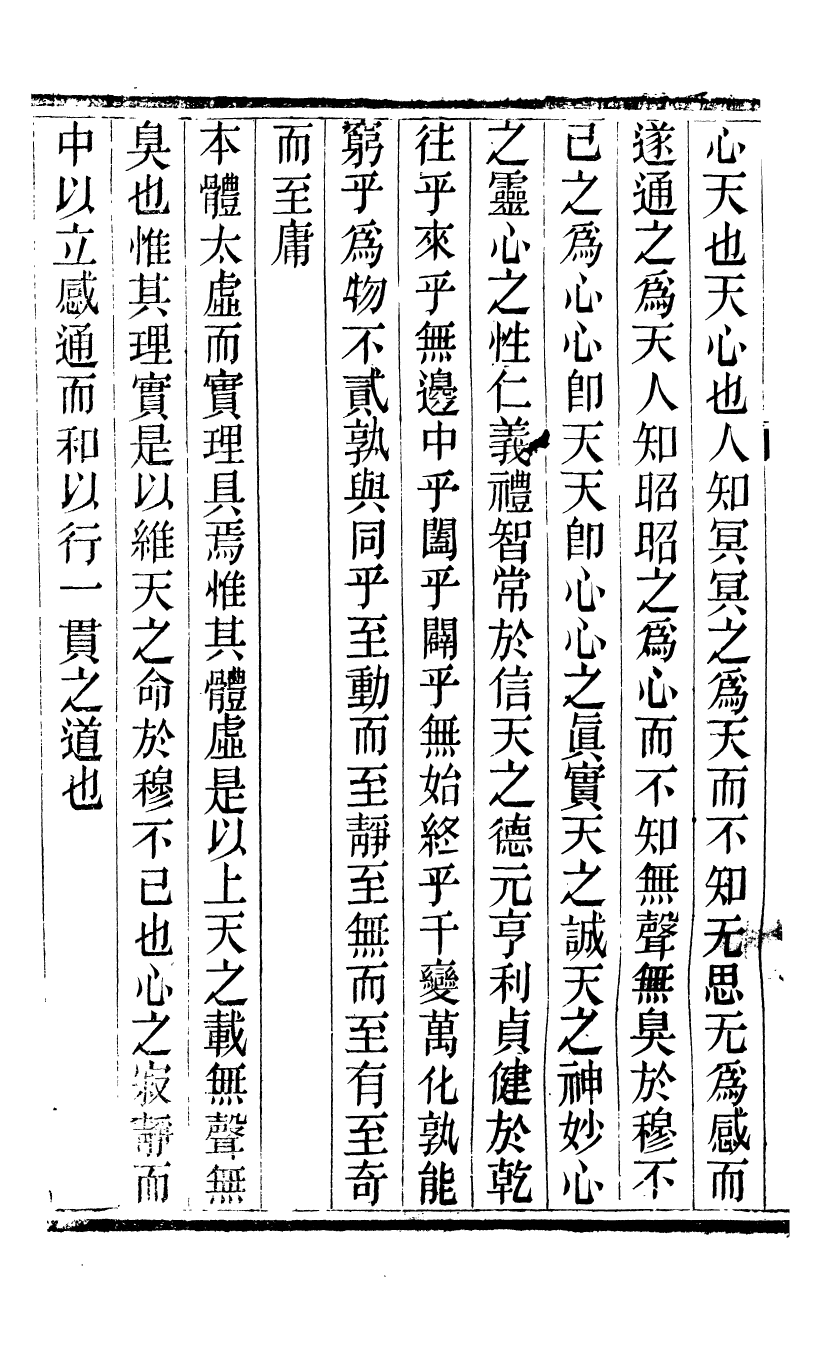 心天也天心也人知冥冥之爲天而不知无思无爲感而
遂通之爲天人知昭昭之爲心而不知無聲無臭於穆不
已之爲心心卽天天卽心心之眞實天之誠天之神妙心
之靈心之性仁義禮智常於信天之德元亨利貞健於乾
往乎來乎無邊中乎闔乎闢乎無始終乎千變萬化孰能
窮乎爲物不貳孰與同乎至動而至靜至無而至有至奇
而至庸
本體太虛而實理具焉惟其體虛是以上天之載無聲無
臭也惟其理實是以維天之命於穆不已也心之寂靜而
中以立感通而和以行一貫之道也